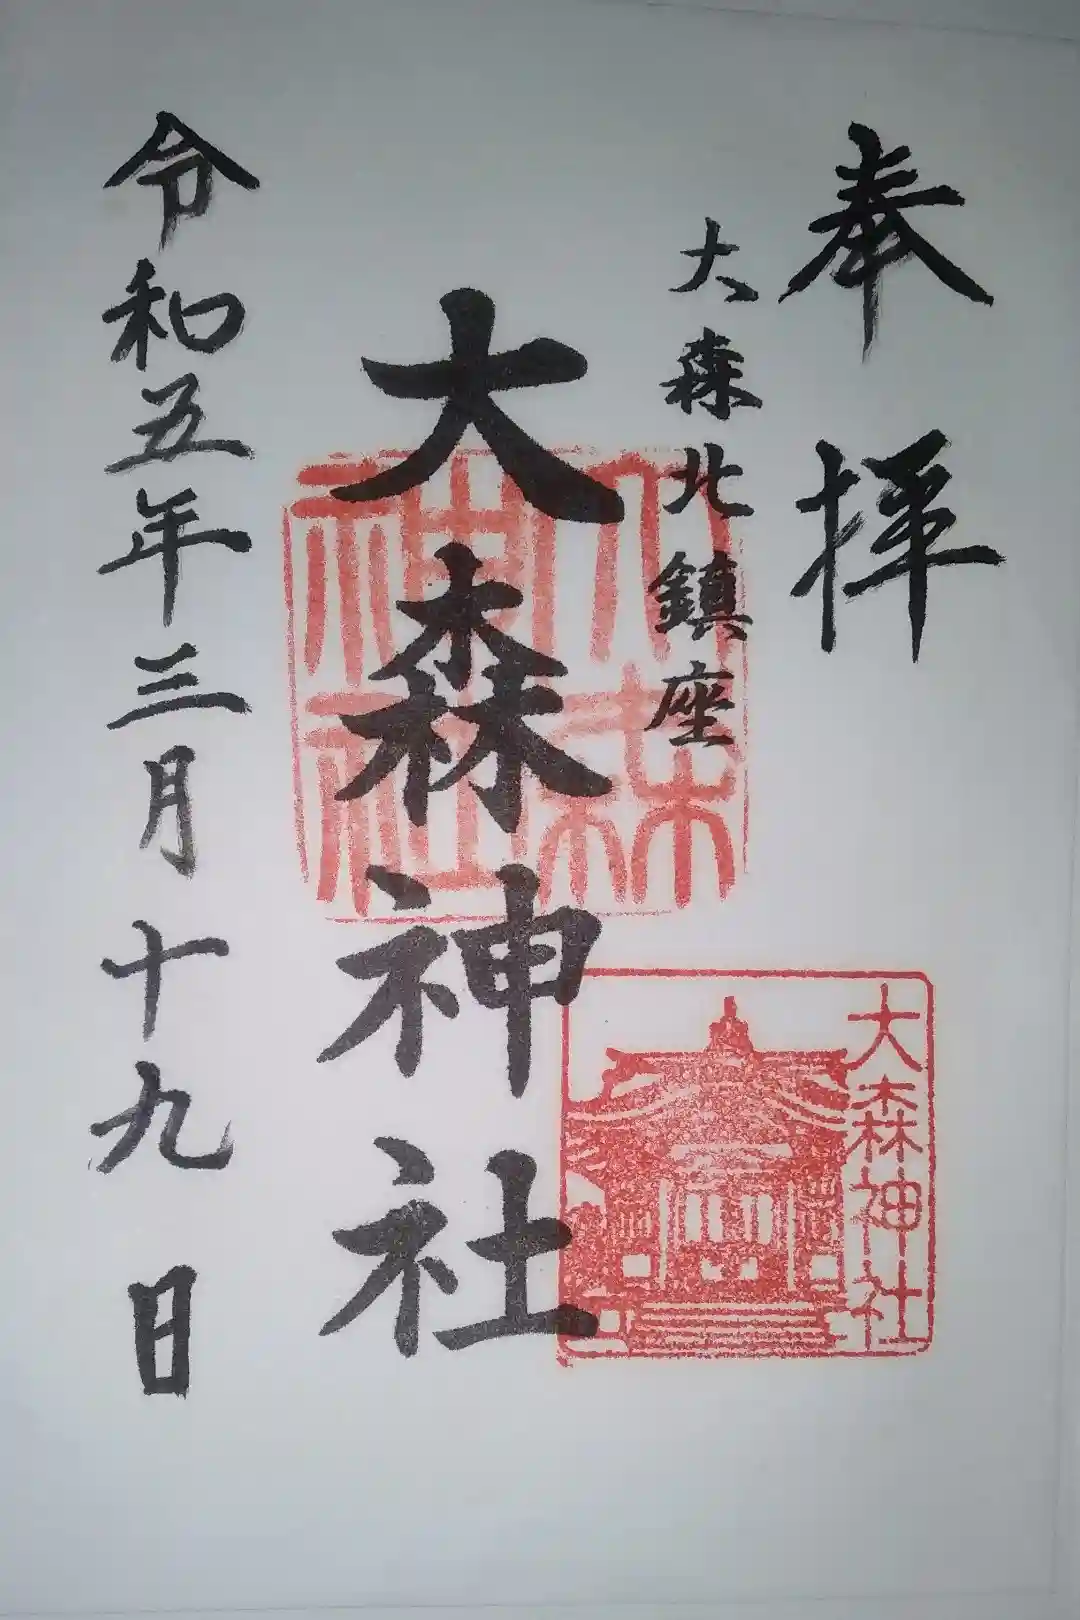 奉拝
大森北鎮座
大森神社
大森神社
大森神社
令和五年三月十九日